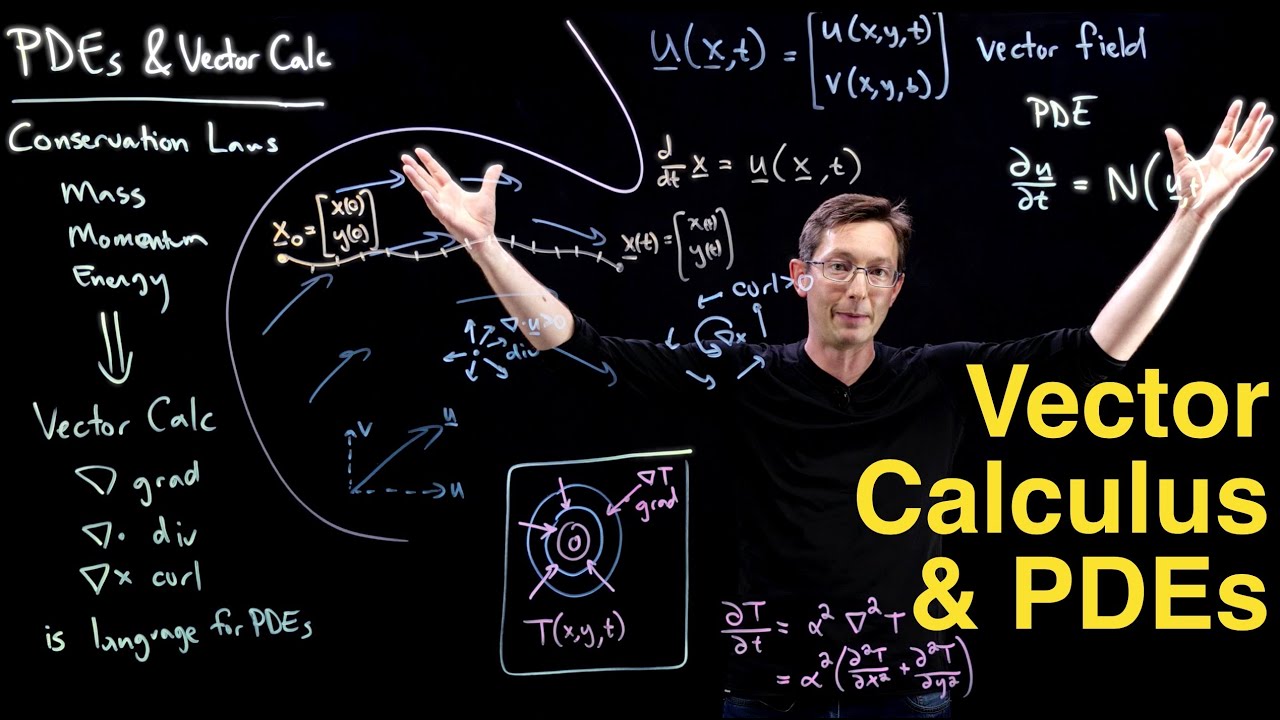 PDEs & Vector Calc
Conservation Laws
Mass
Momentum
Energy
⇓
Vector Calc
∇ grad
∇· div
∇× curl
is language for PDEs
u(x,t) = [u(x,y,t) v(x,y,t)] vector field
PDE
∂u/∂t = N(u,t)
d/dt x = u(x,t)
x₀ = [x(0) y(0)]
x(t) = [x(t) y(t)]
∇·u>0
div
curl>0
∇×
v
u
u
∇T
grad
T(x,y,t)
∂T/∂t = α² ∇² T
= α² (∂²T/∂x² + ∂²T/∂y²)
Vector
Calculus
& PDEs